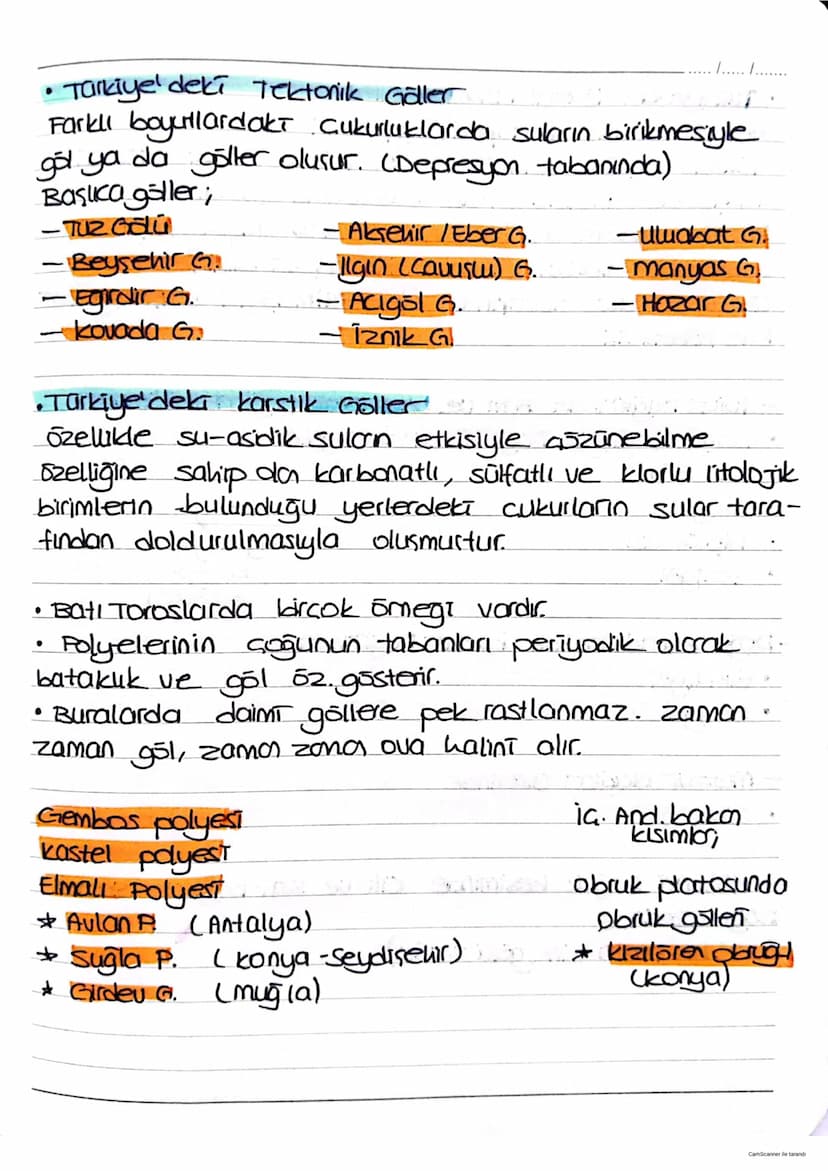 ..... /..... /.......
• Türkiye'deki Tektonik Göller
Farklı boyutlardaki çukurluklarda suların birikmesiyle
göl ya da göller oluşur. (Depresyon tabanında)
Başlıca göller;
– Tuz Gölü
– Beyşehir G.
– Eğirdir G.
– Kovada G.
– Akşehir / Eber G.
– Ilgın (Çavuşlu) G.
– Acıgöl G.
– İznik G.
– Uluabat G.
– Manyas G.
– Hazar G.
• Türkiye'deki karstik Göller
Özellikle su-asidik suların etkisiyle çözünebilme
özelliğine sahip olan karbonatlı, sülfatlı ve klorlu litolojik
birimlerin bulunduğu yerlerdeki çukurların sular tara-
fından doldurulmasıyla oluşmuştur.
• Batı Toroslarda birçok örneği vardır.
• Polyelerinin çoğunun tabanları periyodik olarak
bataklık ve göl öz. gösterir.
• Buralarda daimi göllere pek rastlanmaz. zaman
zaman göl, zaman zaman ova halini alır.
Gembos polyesi
Kastel polyesi
Elmalı Polyesi
* Avlan P. (Antalya)
* Suğla P. (konya -Seydişehir)
* Girdev G. (muğla)
İç. And. bakan
kısımlar;
obruk platosunda
obruk gölleri
* kızılören obruğu
(konya)
CamScanner ile tarandı